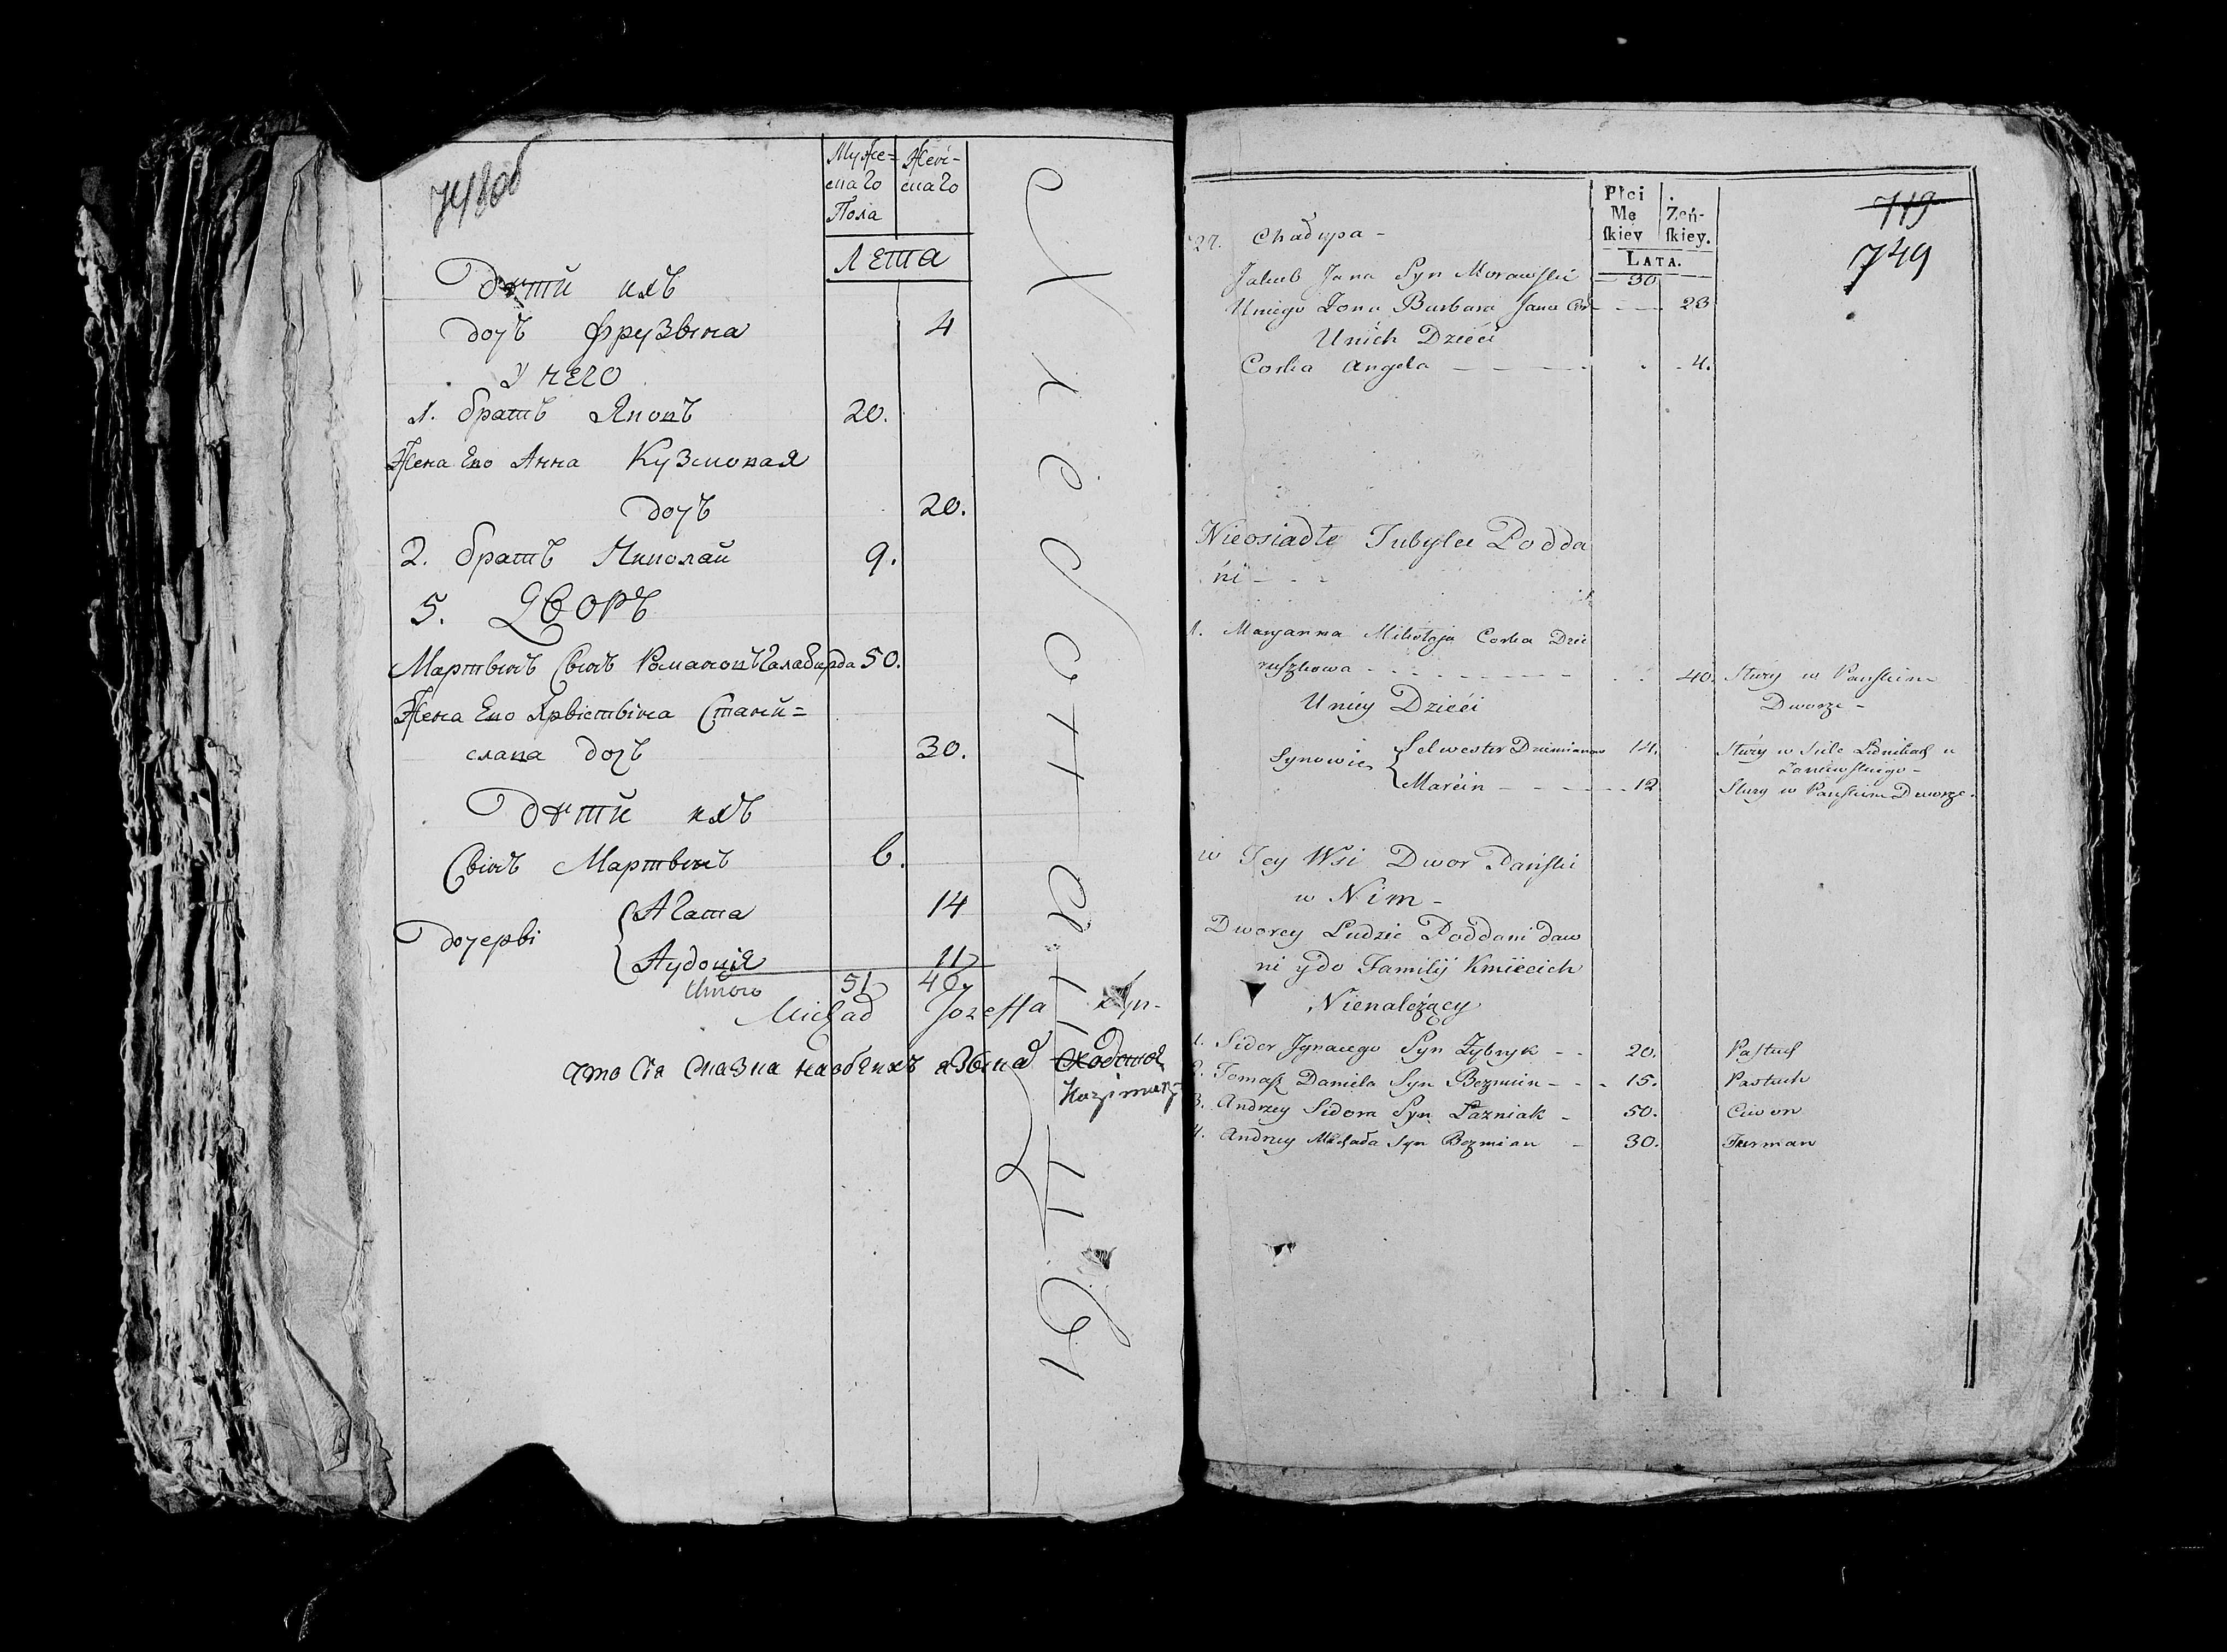 748об
Муже=
скаго
Пола
Жен-
скаго
Лета
Дѣти ихъ
дочь Фрузына 4
У него
1. братъ Яковъ 20.
Жена Его Анна Кузмовая
дочъ 20.
2. братъ Николай 9.
5. Дворъ
Мартынъ Сынъ Романовъ Галабурда 50.
Жена Его Крыстына Стани=
слава дочъ 30.
Дѣти ихъ
Сынъ Мартынъ 6.
Дочеры
Агата 14
Аудоция 11
Итого 51 40
Michał Jozeffa syn
что сія сказка на обеихъ языках
Kazimierz
719
749
Płci
Mę
ſkiey
Zeń-
ſkiey.
Lata.
27. Chałupa -
Jakub Jana Syn Morawſki 30
Uniego Zona Barbara Jana Cor 23
Unich Dzieci
Corka Angela 4.
Nieosiadłe Tubylce Podda
ni
1. Maryanna Mikołaja Corka Dzie
ruszkowa 40. Służy w Pańſkim
Dworze -
Uniey Dzieci
Synowie
Selwester Dziemianow 14. Służy w Siele u
Marcin 12 Służy w Pańſkim Dworze.
w Tey Wsi Dwor Pańſki
w Nim -
Dworcy Ludzie Poddani daw
ni y do Familij Kmiecich
Nienależący
1. Sidor Jgnacego Syn Zybryk 20. Paſtuch
2. Tomaſz Daniela Syn Bezmien 15. Pastuch
3. Andrzey Sidora Syn Łazniak 50. Ciwon
4. Andrzey Michała Syn Bezmian 30. Furman